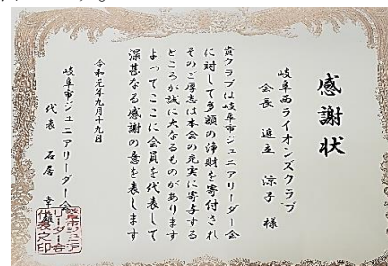 感謝状
岐阜西ライオンズクラブ
会長 追立 涼子 様
貴クラブは岐阜市ジュニアリーダー会
に対して多額の浄財を寄付され
そのご厚志は本会の充実に寄与する
ところが誠に大なるものがあります
よってここに会員を代表して
深甚なる感謝の意を表します
令和元年九月十九日
岐阜市ジュニアリーダー会
代表 石居 幸雄
岐阜市ジュニア
リーダー会
代表之印